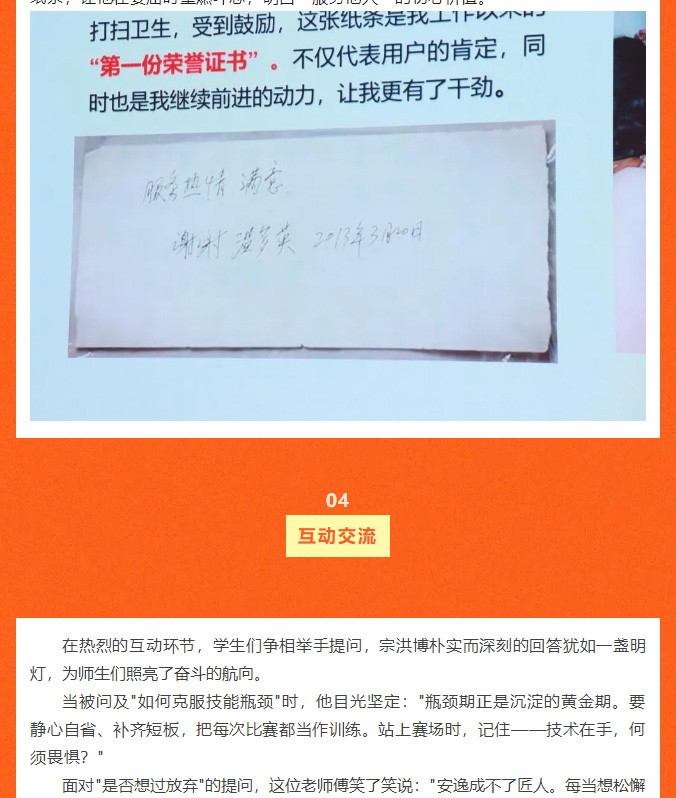 打扫卫生，受到鼓励，这张纸条是我工作以来的
“第一份荣誉证书”。不仅代表用户的肯定，同
时也是我继续前进的动力，让我更有了干劲。
服务热情 满意
谢谢 温梦英 2013年3月20日
04
互动交流
在热烈的互动环节，学生们争相举手提问，宗洪博朴实而深刻的回答犹如一盏明
灯，为师生们照亮了奋斗的航向。
当被问及"如何克服技能瓶颈"时，他目光坚定："瓶颈期正是沉淀的黄金期。要
静心自省、补齐短板，把每次比赛都当作训练。站上赛场时，记住——技术在手，何
须畏惧？"
面对"是否想过放弃"的提问，这位老师傅笑了笑说："安逸成不了匠人。每当想松懈